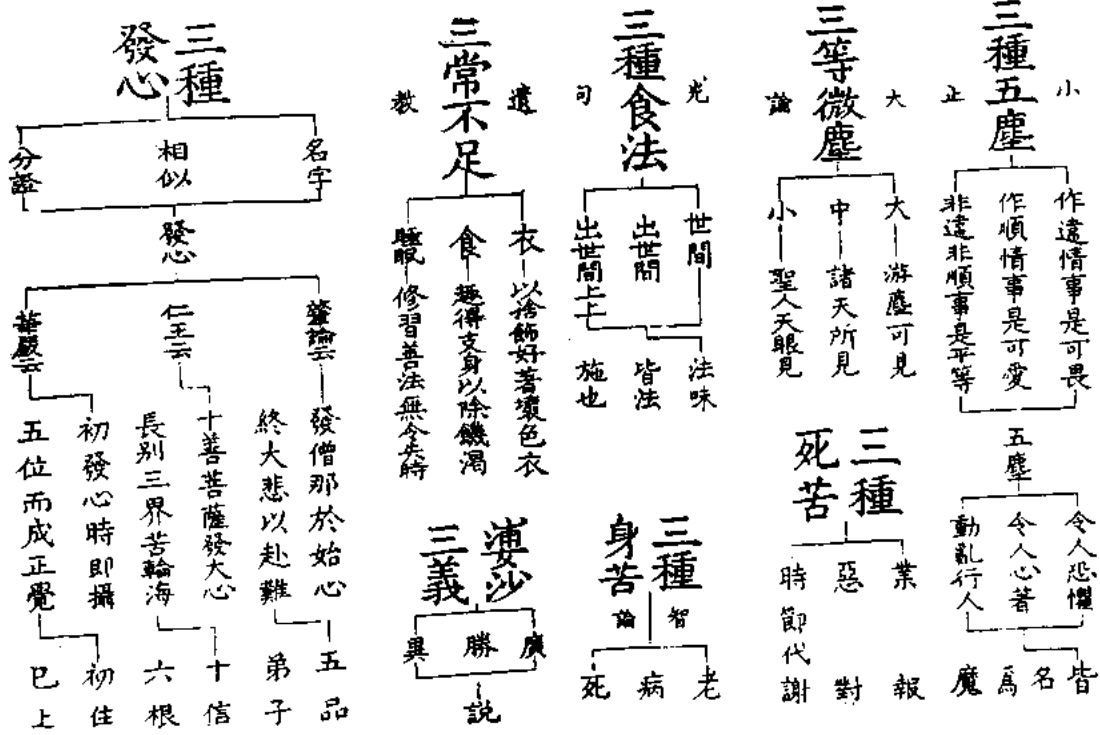 三種五塵
小正
作違情事是可畏
作順情事是可愛
非違非順事是平等
五塵
令人恐懼
令人心著
動亂行人
皆名爲魔
三等微塵
大論
大
游塵可見
中
諸天所見
小
聖人天眼見
三種
死苦
業報
惡對
時節代謝
三種食法
光句
世間
出世間
出世間上上
法味
皆法
施也
三種
身苦
智論
老
病
死
三常不足
遺教
衣
以捨飾好著壞色衣
食
趣得支身以除饑渴
睡眠
修習善法無令失時
婆沙
三義
廣
勝
異
説
三種
發心
名字
相似
分證
發心
肇論云
發僧那於始心
終大悲以赴難
五品
弟子
仁王云
十善菩薩發大心
長別三界苦輪海
十信
六根
華嚴云
初發心時即攝
五位而成正覺
初住
巳上